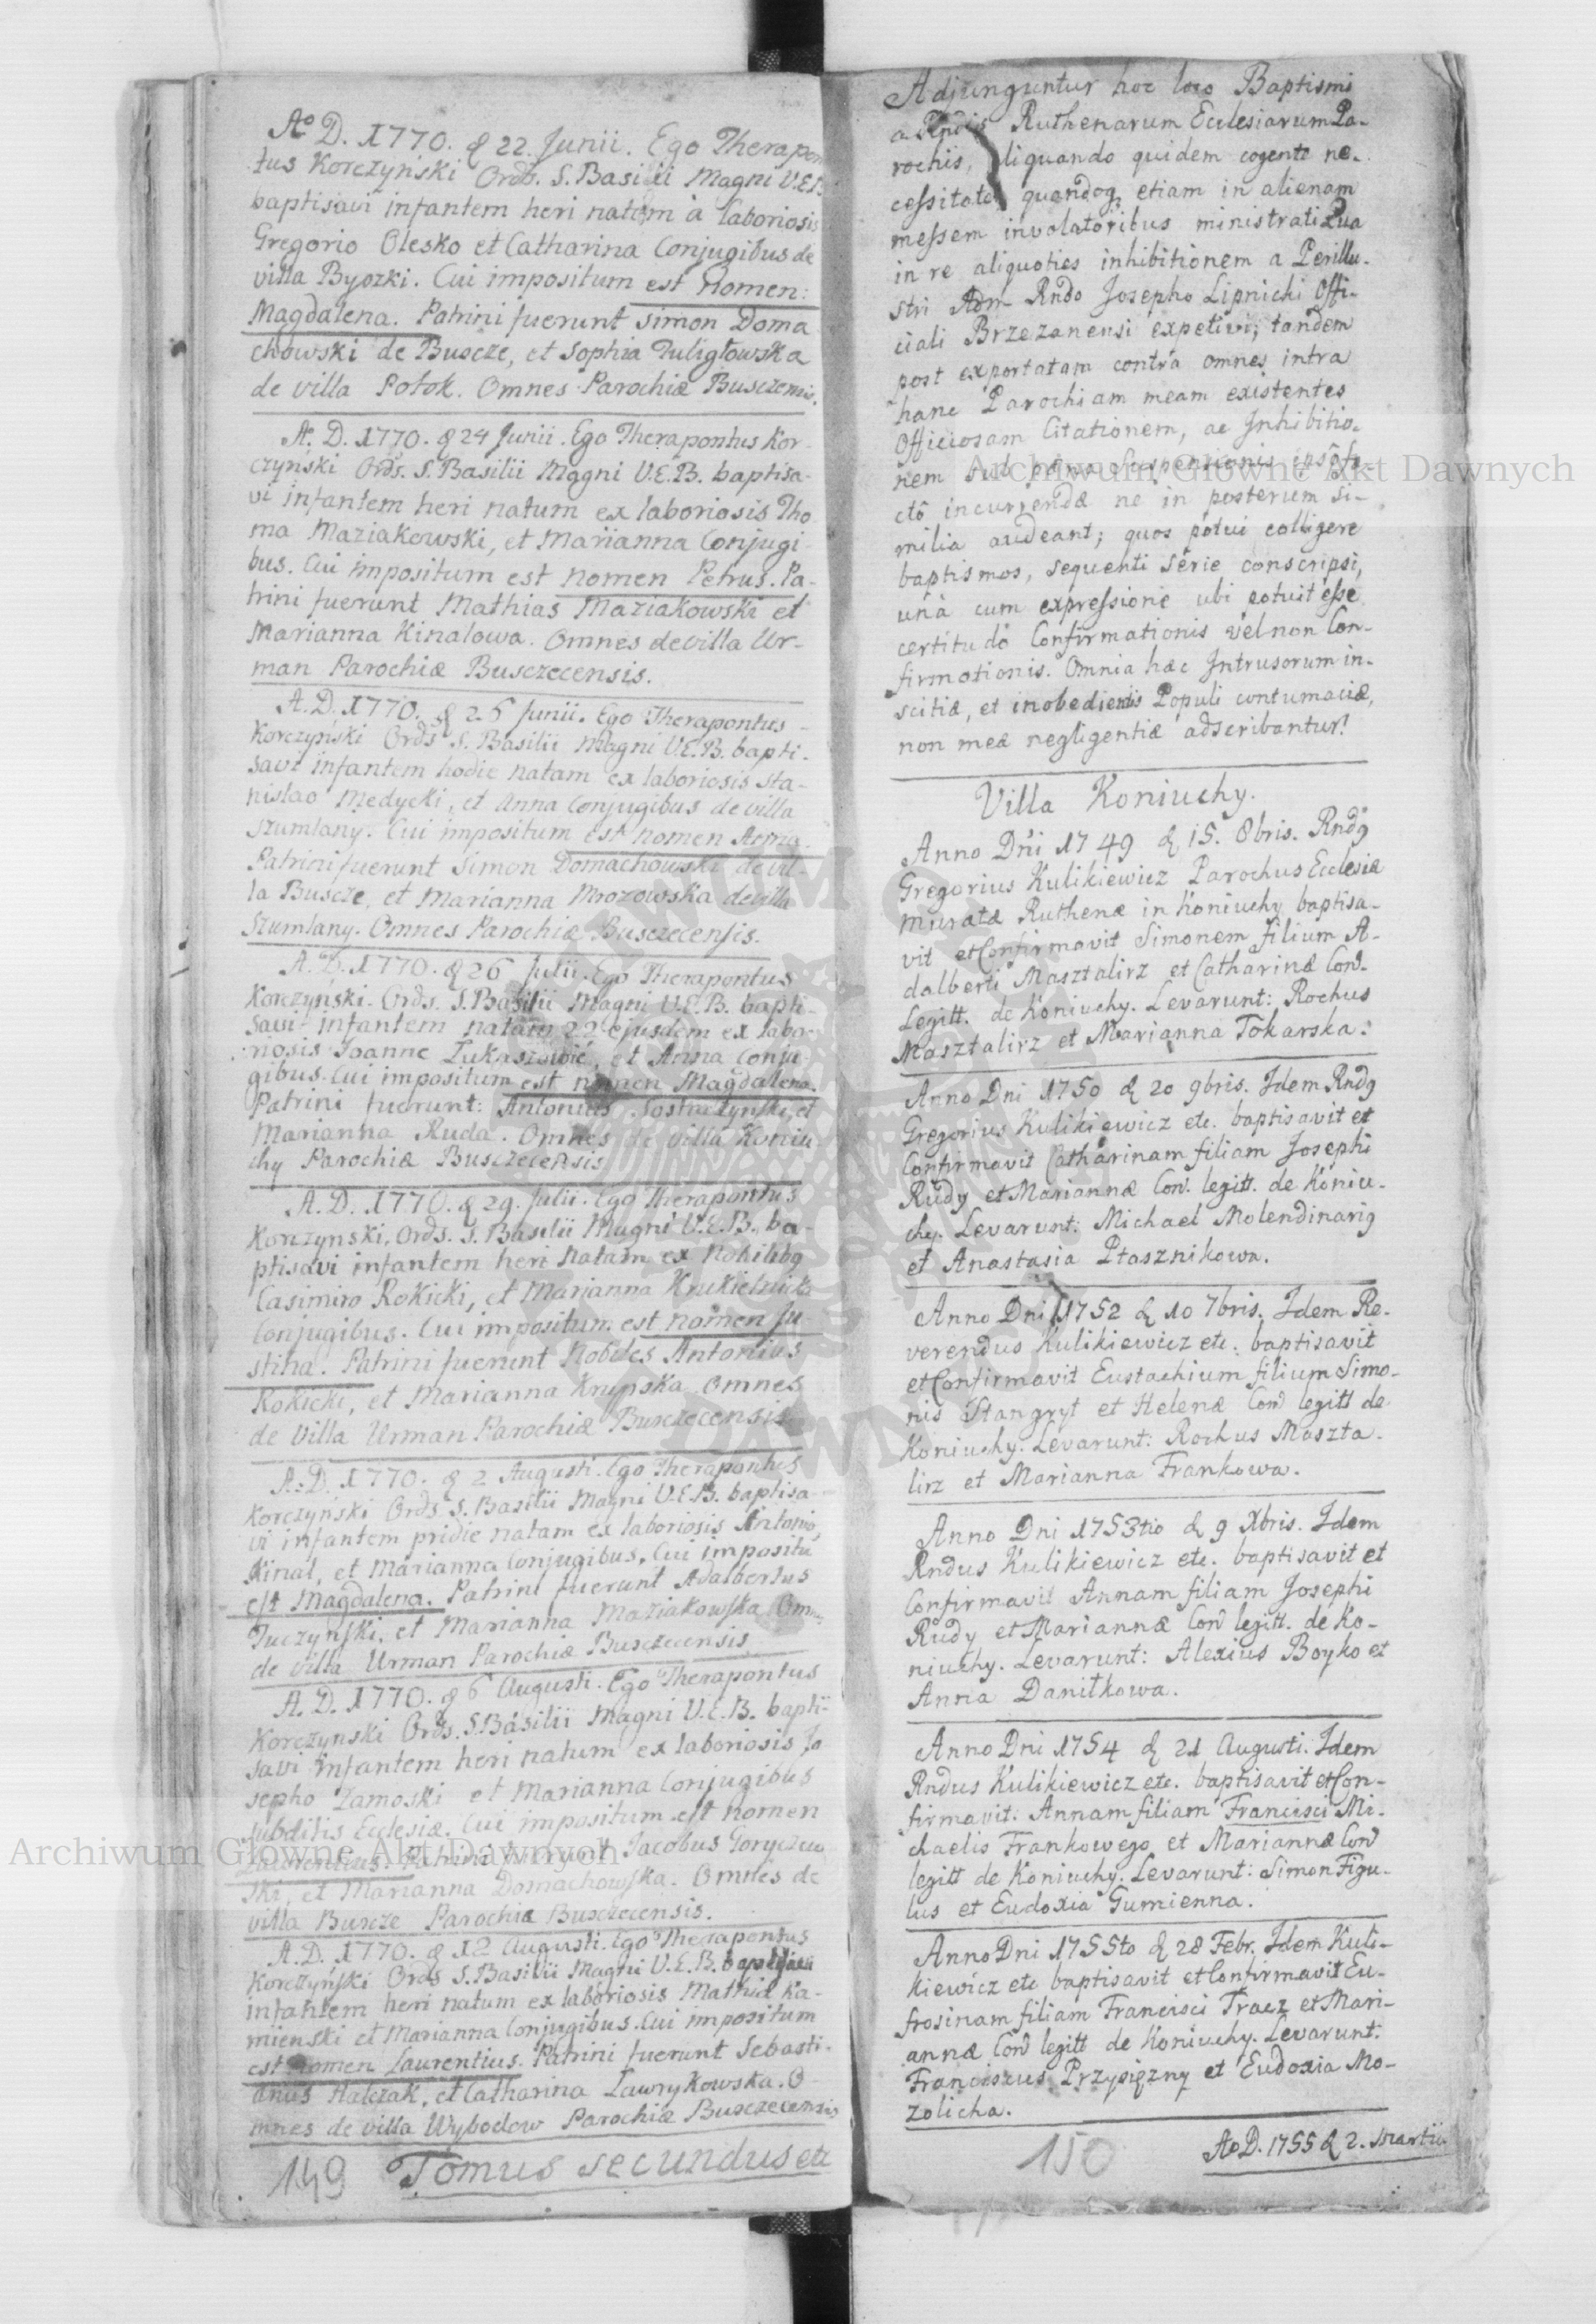 Aº D. 1770. d 22. Junii. Ego Therapon
tus Korczyński Ords. S. Basilii Magni V.E.B.
baptisavi infantem heri natam à laboriosis
Gregorio Olesko et Catharina Conjugibus de
villa Byszki. Cui impositum est Nomen:
Magdalena. Patrini fuerunt Simon Doma
chowski de Buscze, et Sophia Tuligłowska
de villa Potok. Omnes Parochiæ Busczensis.
A. D. 1770. d 24 Junii. Ego Therapontus Kor-
czyński Ords. S. Basilii Magni V.E.B. baptisa-
vi infantem heri natum ex laboriosis Tho
ma Maziakowski, et Marianna Conjugi-
bus. Cui impositum est nomen Petrus. Pa-
trini fuerunt Mathias Maziakowski et
Marianna Kinalowa. Omnes de villa Ur-
man Parochiæ Busczecensis.
A. D. 1770. d 26 Junii. Ego Therapontus
Korczyński Ords S. Basilii Magni V.E.B. bapti-
savi infantem hodie natam ex laboriosis Sta-
nislao Medycki, et Anna Conjugibus de villa
Szumlany. Cui impositum est nomen Anna.
Patrini fuerunt Simon Domachowski de vil-
la Buscze, et Marianna Mrozowska de villa
Szumlany. Omnes Parochiæ Busczecensis.
A. D. 1770. d 26 Julii. Ego Therapontus
Korczyński. Ords. S. Basilii Magni V.E.B. bapti-
savi infantem natam 22 ejusdem ex labo-
riosis Joanne Łukaszowic, et Anna Conju-
gibus. Cui impositum est nomen Magdalena.
Patrini fuerunt: Antonius et
Marianna Ruda. Omnes de villa Koniu
chy Parochiæ Busczecensis
A. D. 1770. d 29. Julii. Ego Therapontus
Korczynski, Ords. S. Basilii Magni V.E.B. ba-
ptisavi infantem heri natam ex Nobilibg
Casimiro Rokicki, et Marianna
Conjugibus. Cui impositum est nomen Ju-
stina. Patrini fuerunt Nobiles Antonius
Rokicki, et Marianna Krypska Omnes
de Villa Urman Parochiæ Busczecensis
A. D. 1770. d 2 Augusti. Ego Therapontus
Korczyński Ords S. Basilii Magni V.E.B. baptisa-
vi infantem pridie natam ex laboriosis Antonio
Kinal, et Marianna Conjugibus. Cui impositũ
est Magdalena. Patrini fuerunt Adalbertus
Tuczyński, et Marianna Maziakowska Omnes
de villa Urman Parochiæ Busczecensis
A. D. 1770. d 6 Augusti. Ego Therapontus
Korczynski Ords. S. Basilii Magni V.E.B. bapti-
savi infantem heri natum ex laboriosis Jo
sepho Zamoski et Marianna Conjugibus
subditis Ecclesiæ. Cui impositum est nomen
Laurentius. Patrini fuerunt Jacobus Goryczew
ski, et Marianna Domachowska. Omnes de
villa Buscze Parochiæ Busczecensis.
A. D. 1770. d 12 Augusti. Ego Therapontus
Korczyński Ords S. Basilii Magni V.E.B. baptisavi
infantem heri natum ex laboriosis Mathia Ka-
mienski et Marianna Conjugibus. Cui impositum
est nomen Laurentius. Patrini fuerunt Sebasti-
anus Halczak, et Catharina Lawrykowska. O-
mnes de villa Wybodow Parochiæ Busczecensis
149 Tomus secundus etc
Adjunguntur hoc loco Baptismi
a Rndis Ruthenarum Ecclesiarum Pa-
rochis, aliquando quidem cogente ne-
cessitate quandoq etiam in alienam
messem involatoribus ministrati Qua
in re aliquoties inhibitionem a Perillu-
stri Adm Rndo Josepho Lipnicki Offi-
ciali Brzezanensi expetivi; tandem
post exportatam contra omnes intra
hanc Parochiam meam existentes
Officiosam Citationem, ac Inhibitio-
nem sub pæna Suspensionis ipso fa-
ctô incurrendæ ne in posterum si-
milia audeant; quos potui colligere
baptismos, sequenti serie conscripsi,
unà cum expressione ubi potuit esse
certitudo Confirmationis vel non Con-
firmationis. Omnia hæc Intrusorum in-
scitiæ, et inobedientis Populi contumaciæ,
non meæ negligentiæ adscribantur!
Villa Koniuchy.
Anno Dni 1749 d 15. 8bris. Rndg
Gregorius Kulikiewicz Parochus Ecclesiæ
Muratæ Ruthenæ in Koniuchy baptisa-
vit et Confirmavit Simonem filium A-
dalberti Masztalirz et Catharinæ Con.
Legitt. de Koniuchy. Levarunt: Rochus
Masztalirz et Marianna Tokarska.
Anno Dni 1750 d 20 9bris. Idem Rndg
Gregorius Kulikiewicz etc. baptisavit et
Confirmavit Catharinam filiam Josephi
Rudy et Mariannæ Con. legitt. de Koniu-
chy. Levarunt: Michael Molendinarig
et Anastasia Ptasznikowa.
Anno Dni 1752 d 10 7bris. Idem Re-
verendus Kulikiewicz etc. baptisavit
et Confirmavit Eustachium filium Simo-
nis Stangryt et Helenæ Con legitt de
Koniuchy. Levarunt: Rochus Maszta-
lirz et Marianna Frankowa.
Anno Dni 1753tio d 9 Xbris. Idem
Rndus Kulikiewicz etc. baptisavit et
Confirmavit Annam filiam Josephi
Rudy et Mariannæ Con legitt. de Ko-
niuchy. Levarunt: Alexius Boyko et
Anna Daniłkowa.
Anno Dni 1754 d 21 Augusti. Idem
Rndus Kulikiewicz etc. baptisavit et Con-
firmavit. Annam filiam Francisci Mi-
chaelis Frankowego et Mariannæ Con
legitt de Koniuchy. Levarunt: Simon Figu-
lus et Eudoxia Gumienna.
Anno Dni 1755to d 28 Febr. Idem Kuli-
kiewicz etc baptisavit et Confirmavit Eu-
frosinam filiam Francisci Tracz et Mari-
annæ Con legitt de Koniuchy. Levarunt:
Franciscus Przysiężny et Eudoxia Mo-
zolicha.
150 Ao D. 1755 d 2. Martii
Archiwum Główne Akt Dawnych
Archiwum Główne Akt Dawnych